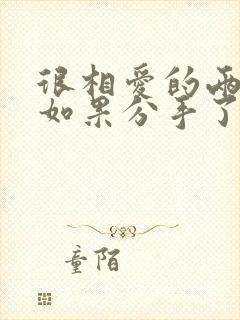 很相爱的兩
如果分手了
童陌